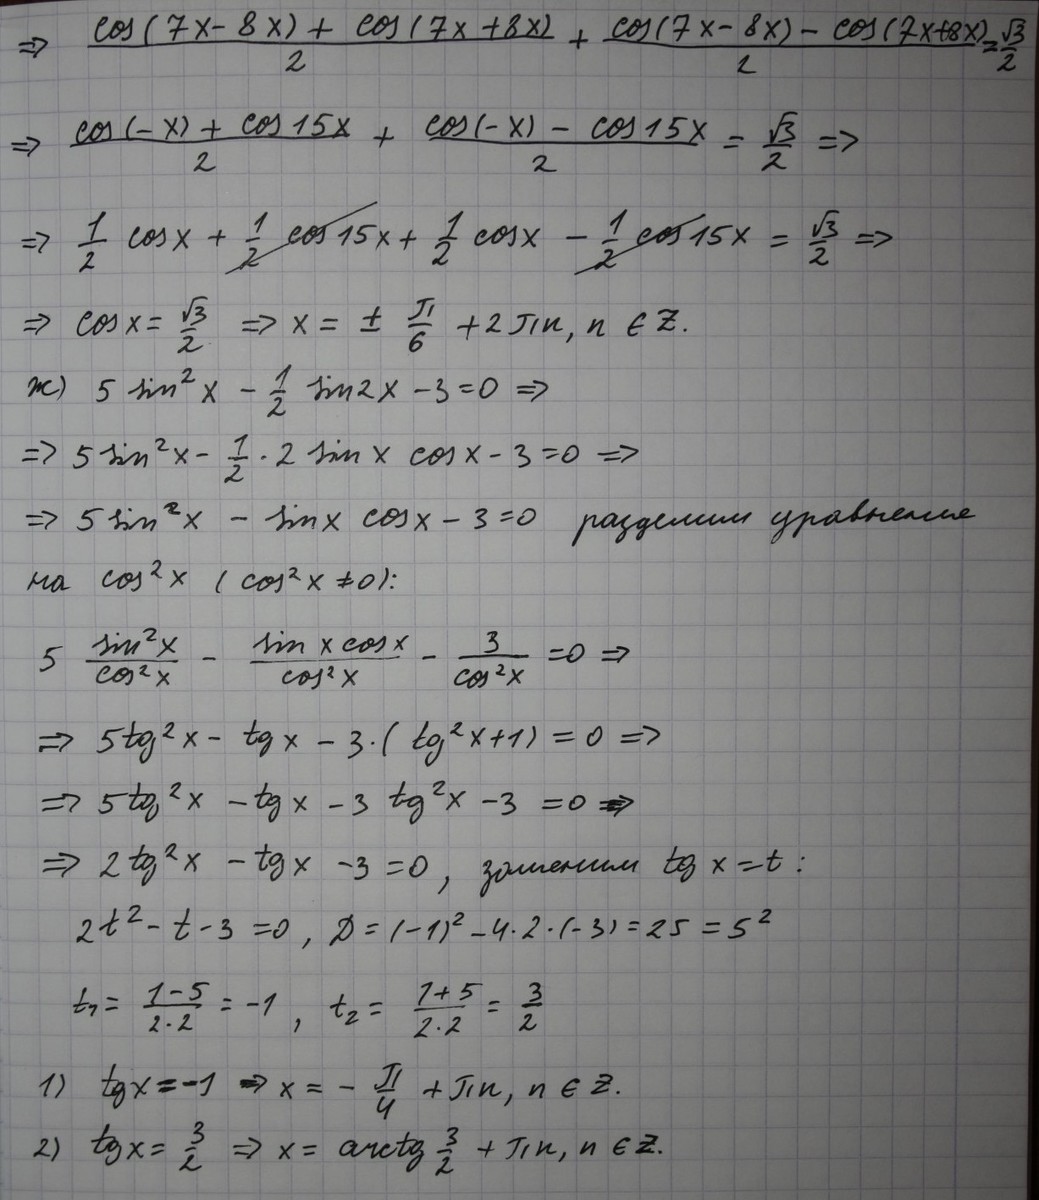 ⇒ (cos(7x-8x) + cos(7x+8x))/2 + (cos(7x-8x) - cos(7x+8x))/2 = √3/2
⇒ (cos(-x) + cos15x)/2 + (cos(-x) - cos15x)/2 = √3/2 ⇒
⇒ 1/2 cosx + 1/2 cos15x + 1/2 cosx - 1/2 cos15x = √3/2 ⇒
⇒ cosx = √3/2 ⇒ x = ± π/6 + 2πn, n ∈ Z.
ж) 5 sin²x - 1/2 sin2x - 3 = 0 ⇒
⇒ 5 sin²x - 1/2 · 2 sinx cosx - 3 = 0 ⇒
⇒ 5 sin²x - sinx cosx - 3 = 0 разделим уравнение
на cos²x (cos²x ≠ 0):
5 sin²x/cos²x - sinx cosx/cos²x - 3/cos²x = 0 ⇒
⇒ 5tg²x - tgx - 3·(tg²x+1) = 0 ⇒
⇒ 5tg²x - tgx - 3 tg²x - 3 = 0 ⇒
⇒ 2tg²x - tgx - 3 = 0, заменим tgx = t:
2t² - t - 3 = 0, D = (-1)² - 4·2·(-3) = 25 = 5²
t₁ = (1-5)/(2·2) = -1, t₂ = (1+5)/(2·2) = 3/2
1) tgx = -1 ⇒ x = - π/4 + πn, n ∈ Z.
2) tgx = 3/2 ⇒ x = arctg 3/2 + πn, n ∈ Z.